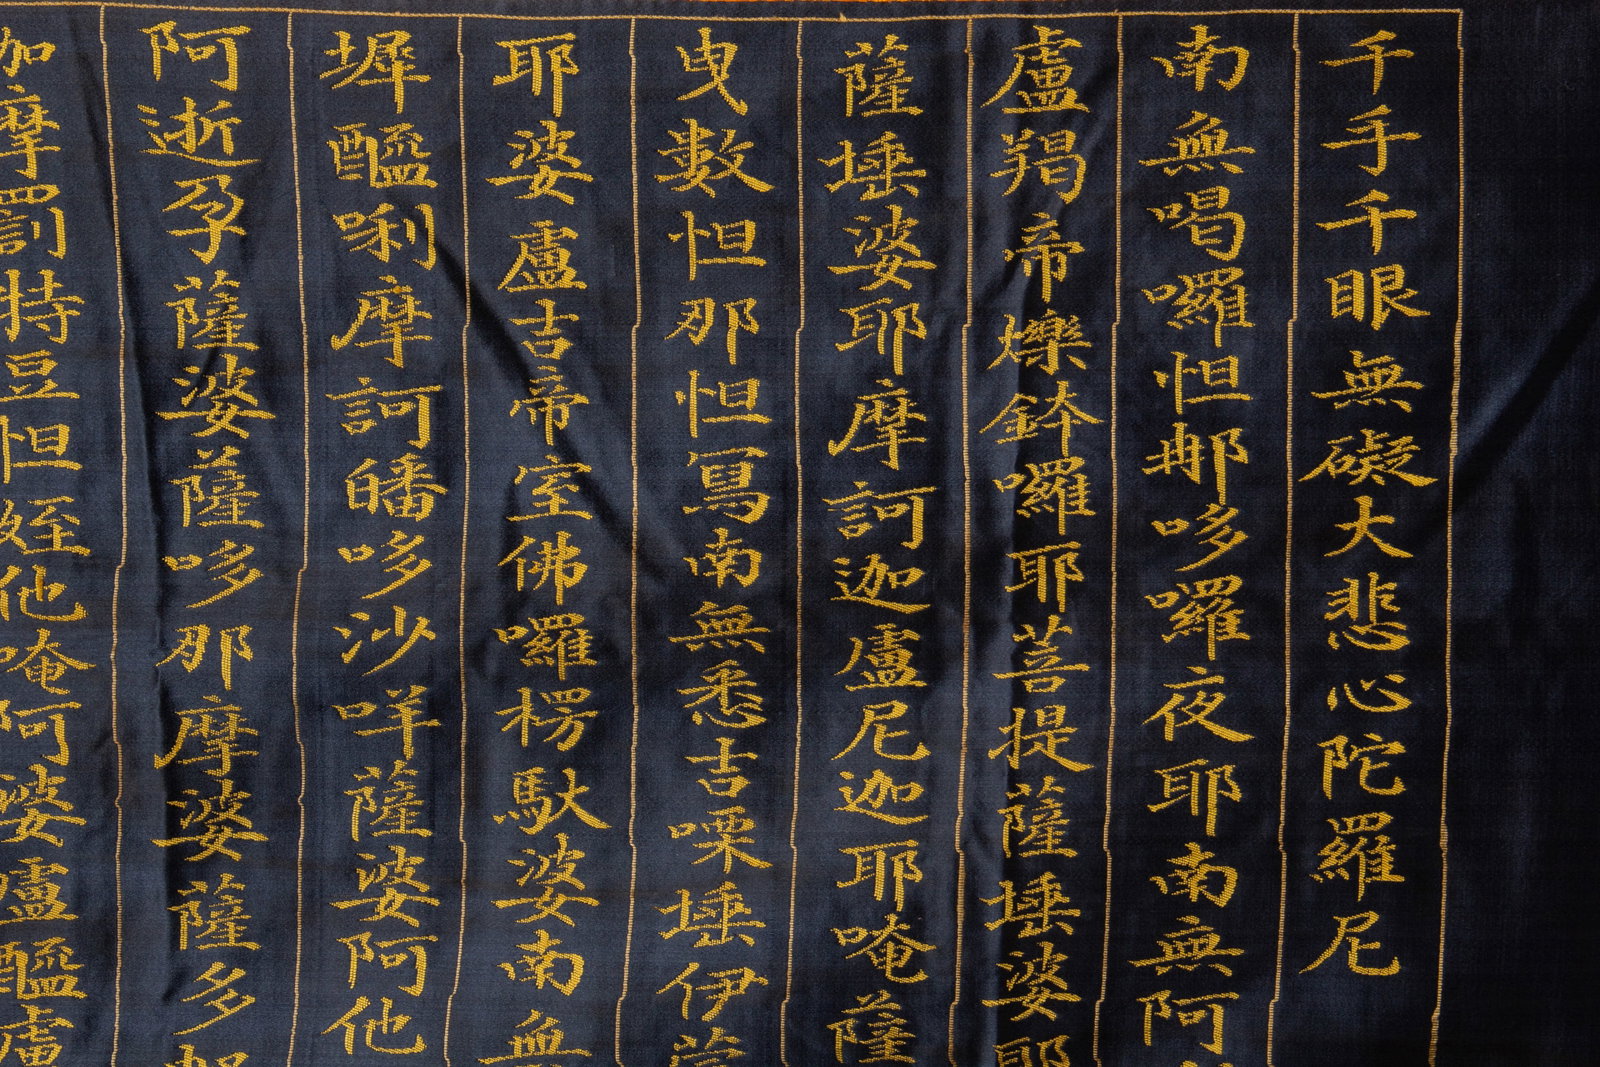 千手千眼無礙大悲心陀羅尼
南無喝囉怛那哆囉夜耶南無阿
盧羯帝爍鉢囉耶菩提薩埵婆耶
薩埵婆耶摩訶迦盧尼迦耶唵薩
曳數怛那怛寫南無悉吉㗚埵伊蒙
耶婆盧吉帝室佛囉楞馱婆南無
墀醯唎摩訶皤哆沙咩薩婆阿他
阿逝孕薩婆薩哆那摩婆薩多
伽摩罰特豆怛姪他唵阿婆盧醯盧